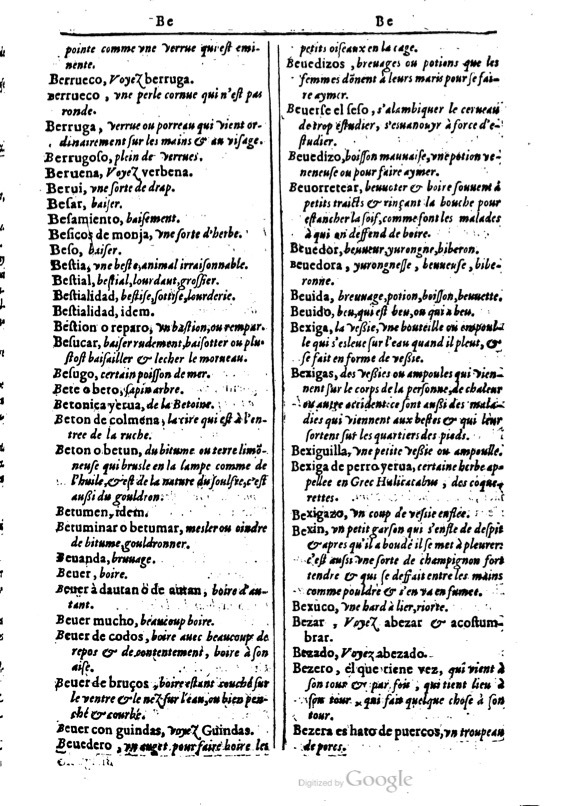 Be
pointe comme vne verrue qui est emi-
nente.
Berrueco, Voyez berruga.
Berrueco, vne perle cornue qui n'est pas
ronde.
Berruga, verrue ou porreau qui vient or-
dinairement sur les mains & au visage.
Berrugoso, plein de verrues.
Beruena, Voyez verbena.
Berui, vne sorte de drap.
Besar, baiser.
Besamiento, baisement.
Besicos de monja, vne sorte d'herbe.
Beso, baiser.
Bestia, vne beste, animal irraisonnable.
Bestial, bestial, lourdaut, grossier.
Bestialidad, bestise, sottise, lourderie.
Bestialidad, idem.
Bestion o reparo, vn bastion, ou rempar.
Besucar, baiser rudement, baisotter ou plu-
stost baisailler & lecher le morueau.
Besugo, certain poisson de mer.
Bete o beto, sapin arbre.
Betonica yerua, de la Betoine.
Beton de colmena, la cire qui est à l'en-
tree de la ruche.
Beton o betun, du bitume ou terre limō-
neuse qui brusle en la lampe comme de
l'huile, & est de la nature du soulfre, c'est
aussi du gouldron.
Betumen, idem.
Betuminar o betumar, mesler ou oindre
de bitume, gouldronner.
Beuanda, bruuage.
Beuer, boire.
Beuer à dautan ò de autan, boire d'au-
tant.
Beuer mucho, beaucoup boire.
Beuer de codos, boire auec beaucoup de
repos & de contentement, boire à son
aise.
Beuer de bruços, boire estant couché sur
le ventre & le nez sur l'eau, ou bien pen-
ché & courbé.
Beuer con guindas, voyez Guindas.
Beuedero, vn auget pour faire boire les
Be
petits oiseaux en la cage.
Beuedizos, breuages ou potions que les
femmes dōnent à leurs maris pour se fai-
re aymer.
Beuerse el seso, s'alambiquer le cerueau
de trop estudier, s'esuanouyr à force d'e-
studier.
Beuedizo, boisson mauuaise, vne potion ve-
neneuse ou pour faire aymer.
Beuorretear, beuuoter & boire souuent à
petits traicts & rinçant la bouche pour
estancher la soif, comme font les malades
à qui on deffend de boire.
Beuedor, beuueur, yurongne, biberon.
Beuedora, yurongnesse, beuueuse, bibe-
ronne.
Beuida, breuuage, potion, boisson, beuuette.
Beuido, beu, qui est beu, ou qui a beu.
Bexiga, la vessie, vne bouteille ou empoul-
le qui s'esleue sur l'eau quand il pleut, &
se fait en forme de vessie.
Bexigas, des vessies ou ampoules qui vien-
nent sur le corps de la personne, de chaleur
ou autre accident: ce sont aussi des mala-
dies qui viennent aux bestes & qui leur
sortent sur les quartiers des pieds.
Bexiguilla, vne petite vessie ou ampoulle.
Bexiga de perro yerua, certaine herbe ap-
pellee en Grec Halicacabus, des coque-
rettes.
Bexigazo, vn coup de vessie enflee.
Bexin, vn petit garson qui s'enfle de despit
& apres qu'il a boudé il se met à pleurer:
c'est aussi vne sorte de champignon fort
tendre & qui se deffait entre les mains
comme pouldre & s'en va en fumee.
Bexuco, vne hard à lier, riorte.
Bezar, Voyez abezar & acostum-
brar.
Bezado, Voyez abezado.
Bezero, él que tiene vez, qui vient à
son tour & par fois, qui tient lieu à
son tour, qui fait quelque chose à son
tour.
Bezera es hato de puercos, vn trouppeau
de porcs.
Digitized by Google